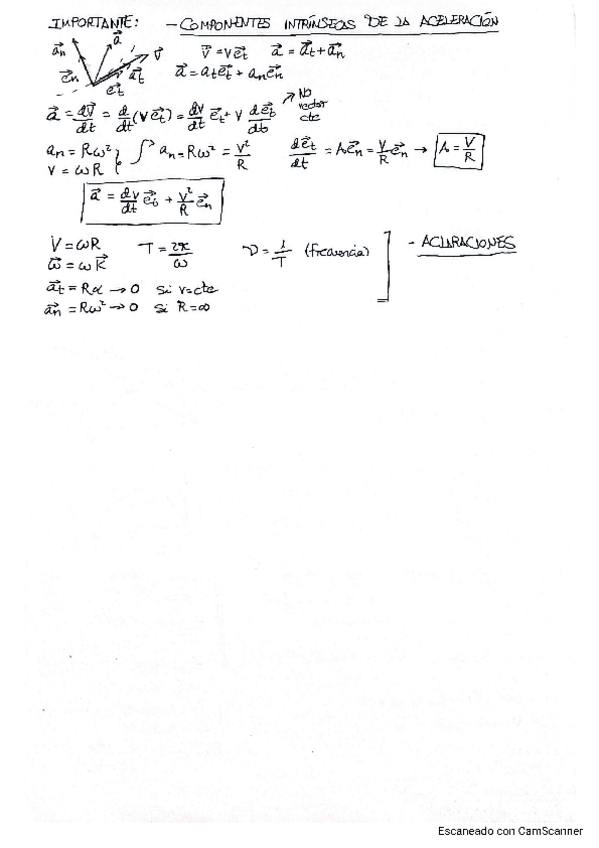 IMPORTANTE: - COMPONENTES INTRÍNSECAS DE LA ACELERACIÓN
a⃗n a⃗ v⃗ v⃗ = v e⃗t a⃗ = a⃗t + a⃗n
e⃗n e⃗t a⃗t a⃗ = at e⃗t + an e⃗n
a⃗ = dv⃗/dt = d/dt (v e⃗t) = dv/dt e⃗t + v de⃗t/dt → No vector cte
an = Rω² } an = Rω² = v²/R de⃗t/dt = A e⃗n = v/R e⃗n → A = v/R
v = ωR
a⃗ = dv/dt e⃗t + v²/R e⃗n
V = ωR T = 2π/ω ν = 1/T (frecuencia) ] - ACLARACIONES
ω⃗ = ω k⃗
a⃗t = Rα → 0 si v=cte
a⃗n = Rω² → 0 si R=∞
Escaneado con CamScanner